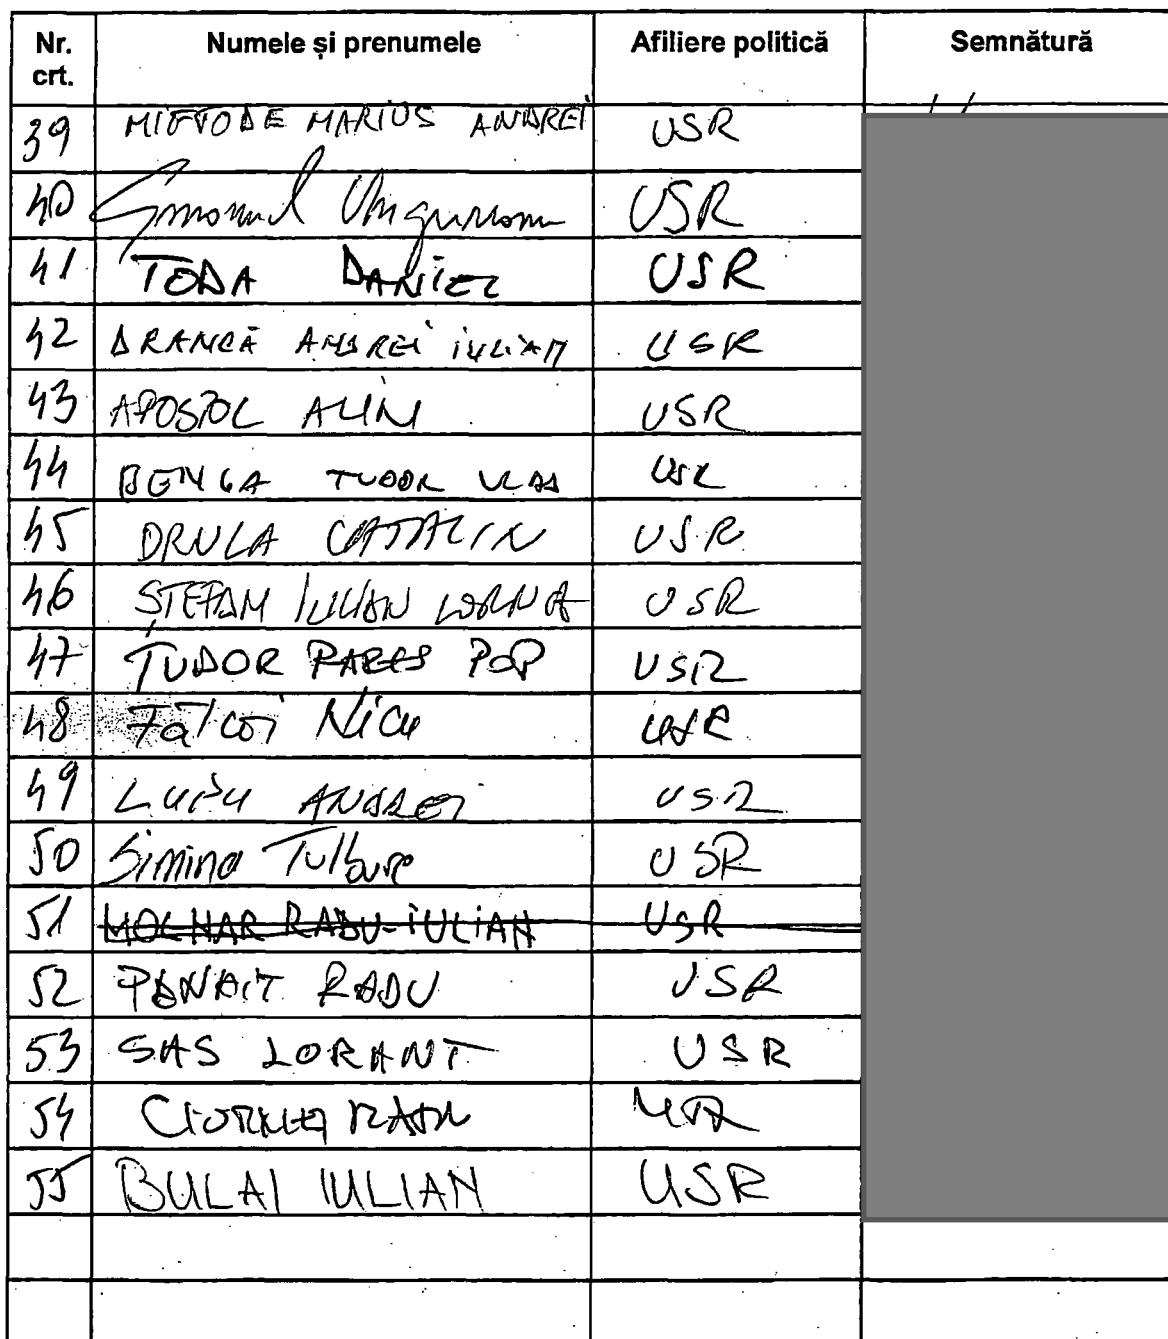 Nr. crt. Numele și prenumele Afiliere politică Semnătură
39 MIFTODE MARIUS ANDREI USR
40 Emanuel Ungureanu USR
41 TODA DANIEL USR
42 DRANCĂ ANDREI IULIAN USR
43 APOSTOL ALIN USR
44 BENGA TUDOR VLAD USR
45 DRULA CATALIN USR
46 ȘTEFAN IULIAN LORINCZ USR
47 TUDOR RAREȘ POP USR
48 Fălcoi Nicu USR
49 LUPU ANDREI USR
50 Simina Tulbure USR
51 MOLNAR RADU-IULIAN USR
52 PANAIT RADU USR
53 SAS LORANT USR
54 CIORNEI RADU USR
55 BULAI IULIAN USR